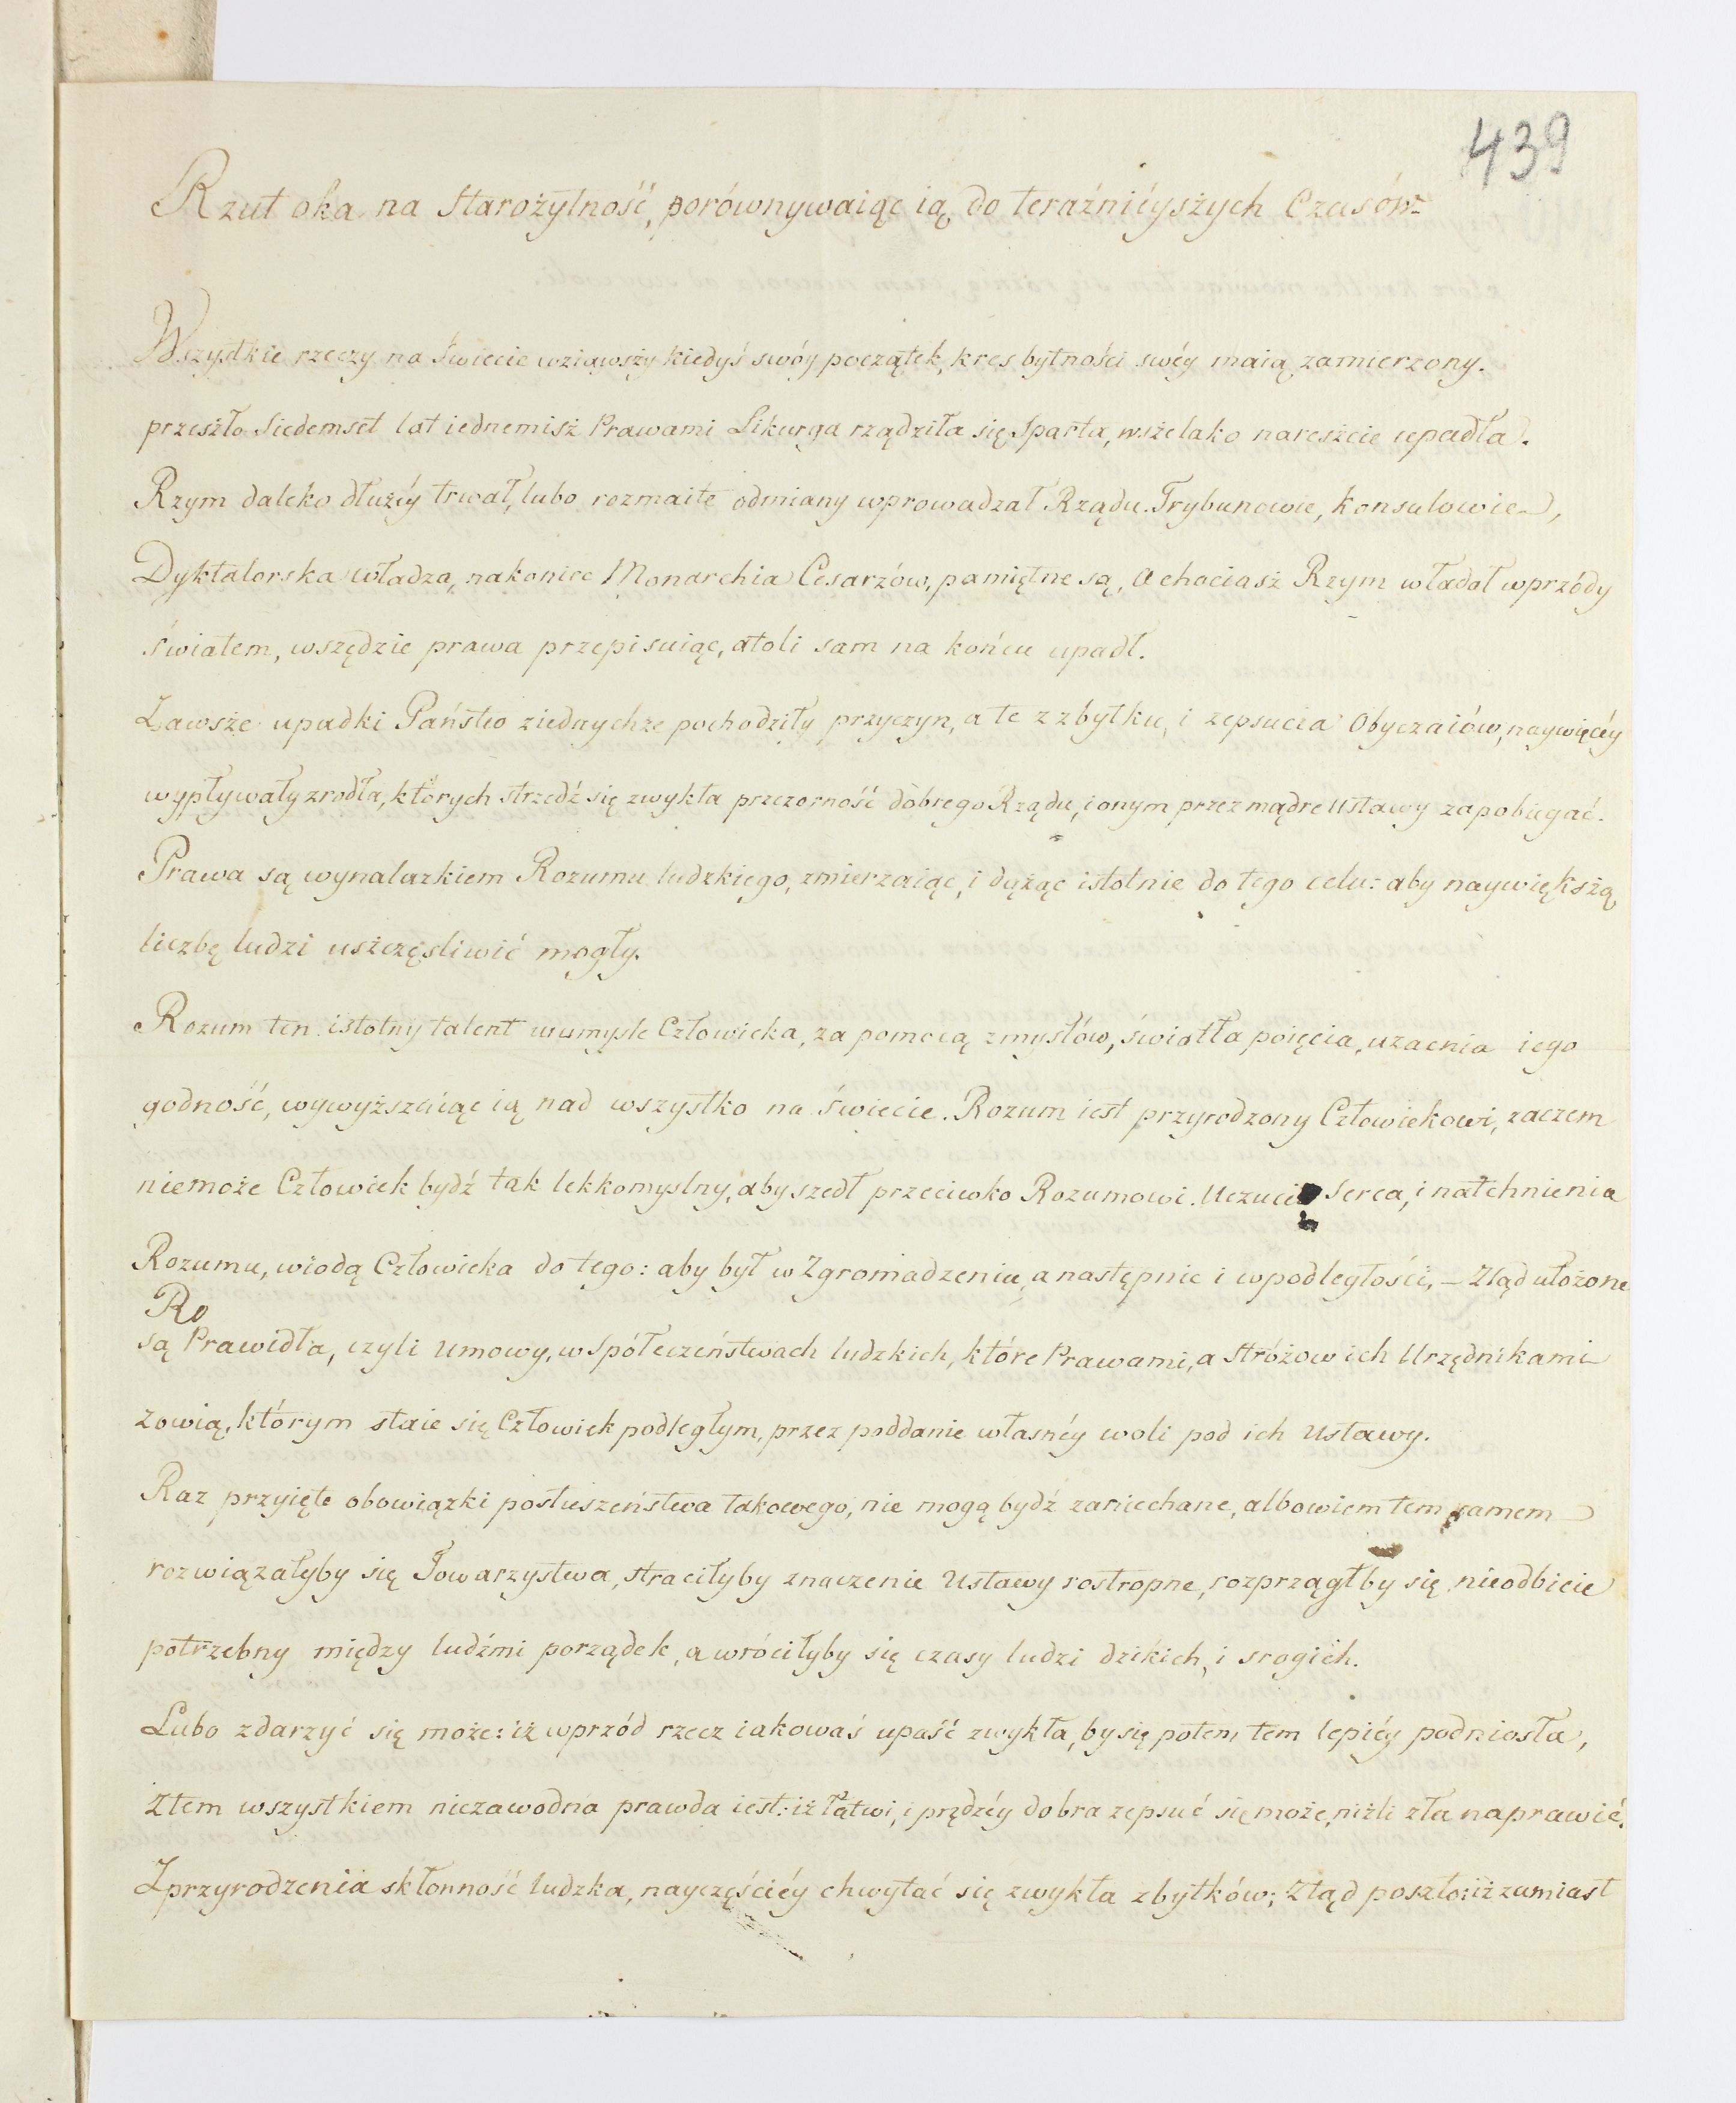 439
Rzut oka na Starożytność, porównywaiąc ią do teraźnieyszych Czasów.
Wszystkie rzeczy na świecie wziąwszy kiedyś swóy początek, kres bytności swéy maią zamierzony.
przeszło Siedemset lat iednemisż Prawami Likurga rządziła się Sparta, wszelako nareszcie upadła.
Rzym daleko dłużéy trwał, lubo rozmaite odmiany wprowadzał Rządu. Trybunowie, Konsulowie,
Dyktatorska władza, nakoniec Monarchia Cesarzów, pamiętne są, a chociasż Rzym władał wprzódy
światem, wszędzie prawa przepisuiąc, atoli sam na końcu upadł.
Zawsze upadki Państw ziednychże pochodziły przyczyn, a te z zbytku, i zepsucia Obyczaiów, naywięcéy
wypływały zrodła, których strzedź się zwykła przezorność dobrego Rządu, i onym przez mądre Ustawy zapobiegać.
Prawa są wynalazkiem Rozumu ludzkiego, zmierzaiąc, i dążąc istotnie do tego celu: aby naywiększą
liczbę ludzi uszczęsliwić mogły.
Rozum ten istotny talent wumyśle Człowieka, za pomocą zmysłów, światła poięcia, uzacnia iego
godność, wywyższaiąc ią nad wszystko na świecie. Rozum iest przyrodzony Człowiekowi, zaczem
niemoże Człowiek bydź tak lekkomyslny, aby szedł przeciwko Rozumowi. Uczucia Serca, i natchnienia
Rozumu, wiodą Człowieka do tego: aby był w Zgromadzeniu, a następnie i wpodległości, – Ztąd ułożone
Ro
są Prawidła, czyli Umowy, w Spółeczeństwach ludzkich, które Prawami, a Stróżow ich Urzędnikami
zowią, którym staie się Człowiek podległym, przez poddanie własnéy woli pod ich Ustawy.
Raz przyięte obowiązki posłuszeństwa takowego, nie mogą bydź zaniechane, albowiem tem samem
rozwiązałyby się Towarzystwa, straciłyby znaczenie Ustawy rostropne, rozprzągłby się nieodbicie
potrzebny między ludźmi porządek, a wróciłyby się czasy ludzi dzikich, i srogich.
Lubo zdarzyć się może: iż wprzód rzecz iakowaś upaść zwykła, by się potem tem lepiéy podniosła,
Ztem wszystkiem niezawodna prawda iest: iż łatwi, i prędzéy dobra zepsuć się może, niżli zła naprawić.
Zprzyrodzenia skłonność ludzka, nayczęściéy chwytać się zwykła zbytków; Ztąd poszło: iż zamiast